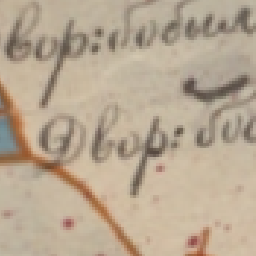 двор: бобыл
Двор: боб